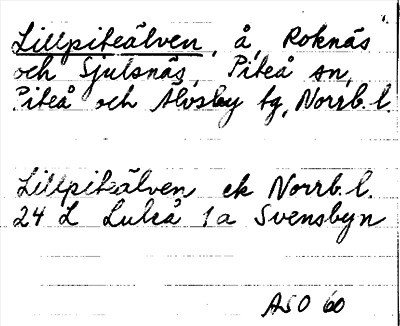 Lillpiteälven, å, Roknäs
och Sjulsnäs, Piteå sn,
Piteå och Älvsby tg, Norrb. l.
Lillpiteälven ek Norrb. l.
24 L Luleå 1a Svensbyn
ASO 60